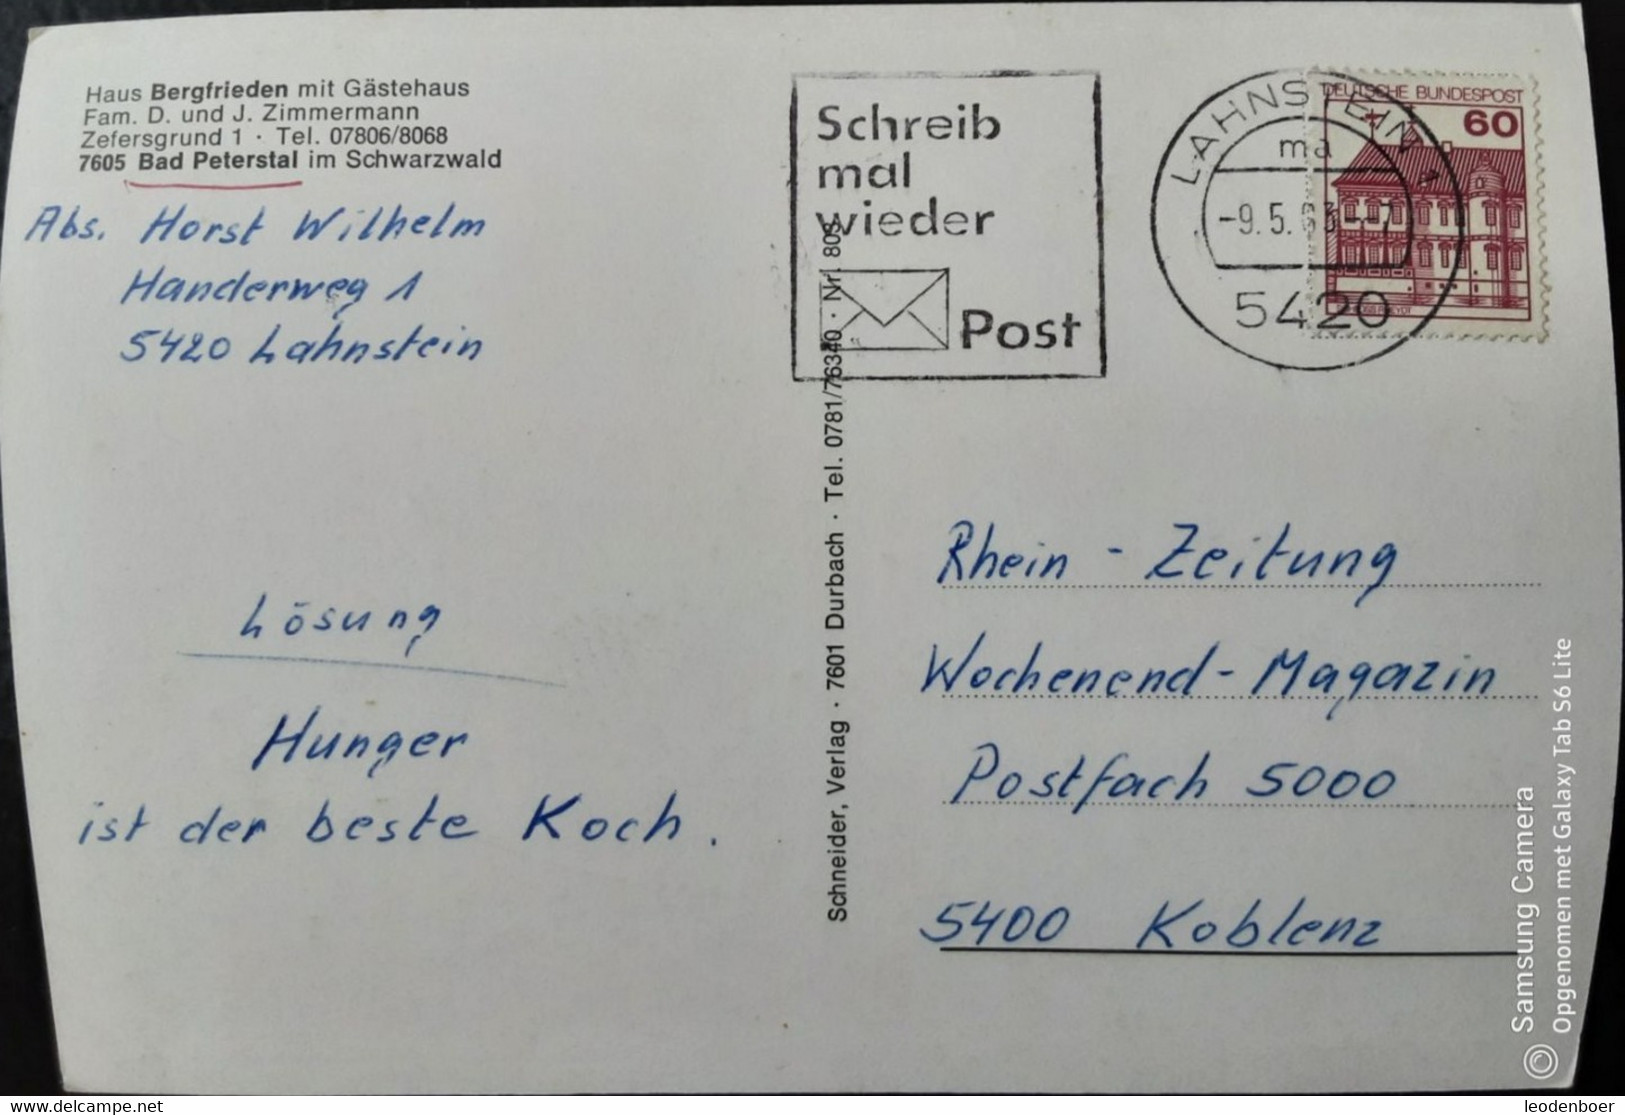 Haus Bergfrieden mit Gästehaus
Fam. D. und J. Zimmermann
Zefersgrund 1 · Tel. 07806/8068
7605 Bad Peterstal im Schwarzwald
Abs. Horst Wilhelm
Handerweg 1
5420 Lahnstein
Lösung
Hunger
ist der beste Koch.
Schneider, Verlag · 7601 Durbach · Tel. 0781/76340 · Nr. 805
Schreib
mal
wieder
Post
LAHNSTEIN 1
ma
-9.5.83--7
5420
DEUTSCHE BUNDESPOST
60
Rhein-Zeitung
Wochenend-Magazin
Postfach 5000
5400 Koblenz
Samsung Camera
Opgenomen met Galaxy Tab S6 Lite
www.delcampe.net
leodenboer